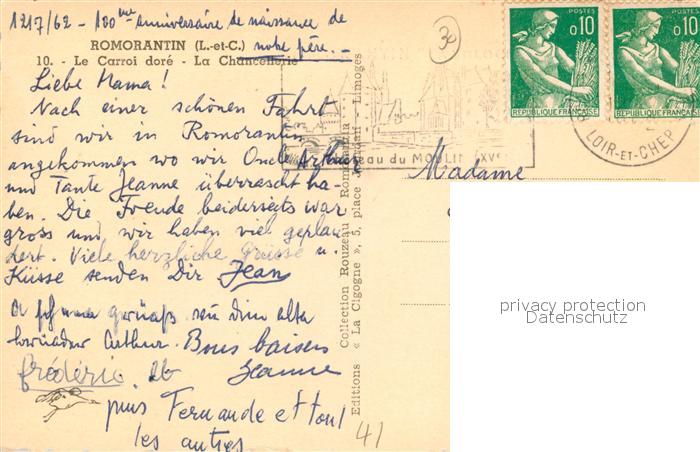 1217/62 - 100ème anniversaire de naissance de
notre père. -
ROMORANTIN (L.-et-C.)
10. - Le Carroi doré - La Chancellerie
30
Liebe Mama!
Nach einer schönen Fahrt
sind wir in Romorantin
angekommen wo wir Oncle Arthur
und Tante Jeanne überrascht ha-
ben. Die Freude beiderseits war
gross und wir haben viel geplau
dert. Viele herzliche Grüsse u.
Küsse senden Dir Jean
alter
Arthur. Bons baisers
frédéric. Jeanne
puis Fernande et tout
les autres
41
Collection Rouzeau Romorantin
Editions « La Cigogne », 5, place Jourdan - Limoges
Madame
POSTES
0,10
REPUBLIQUE FRANÇAISE
POSTES
0,10
REPUBLIQUE FRANÇAISE
LOIR-ET-CHER
eau du MOULIN (XVe
privacy protection
Datenschutz